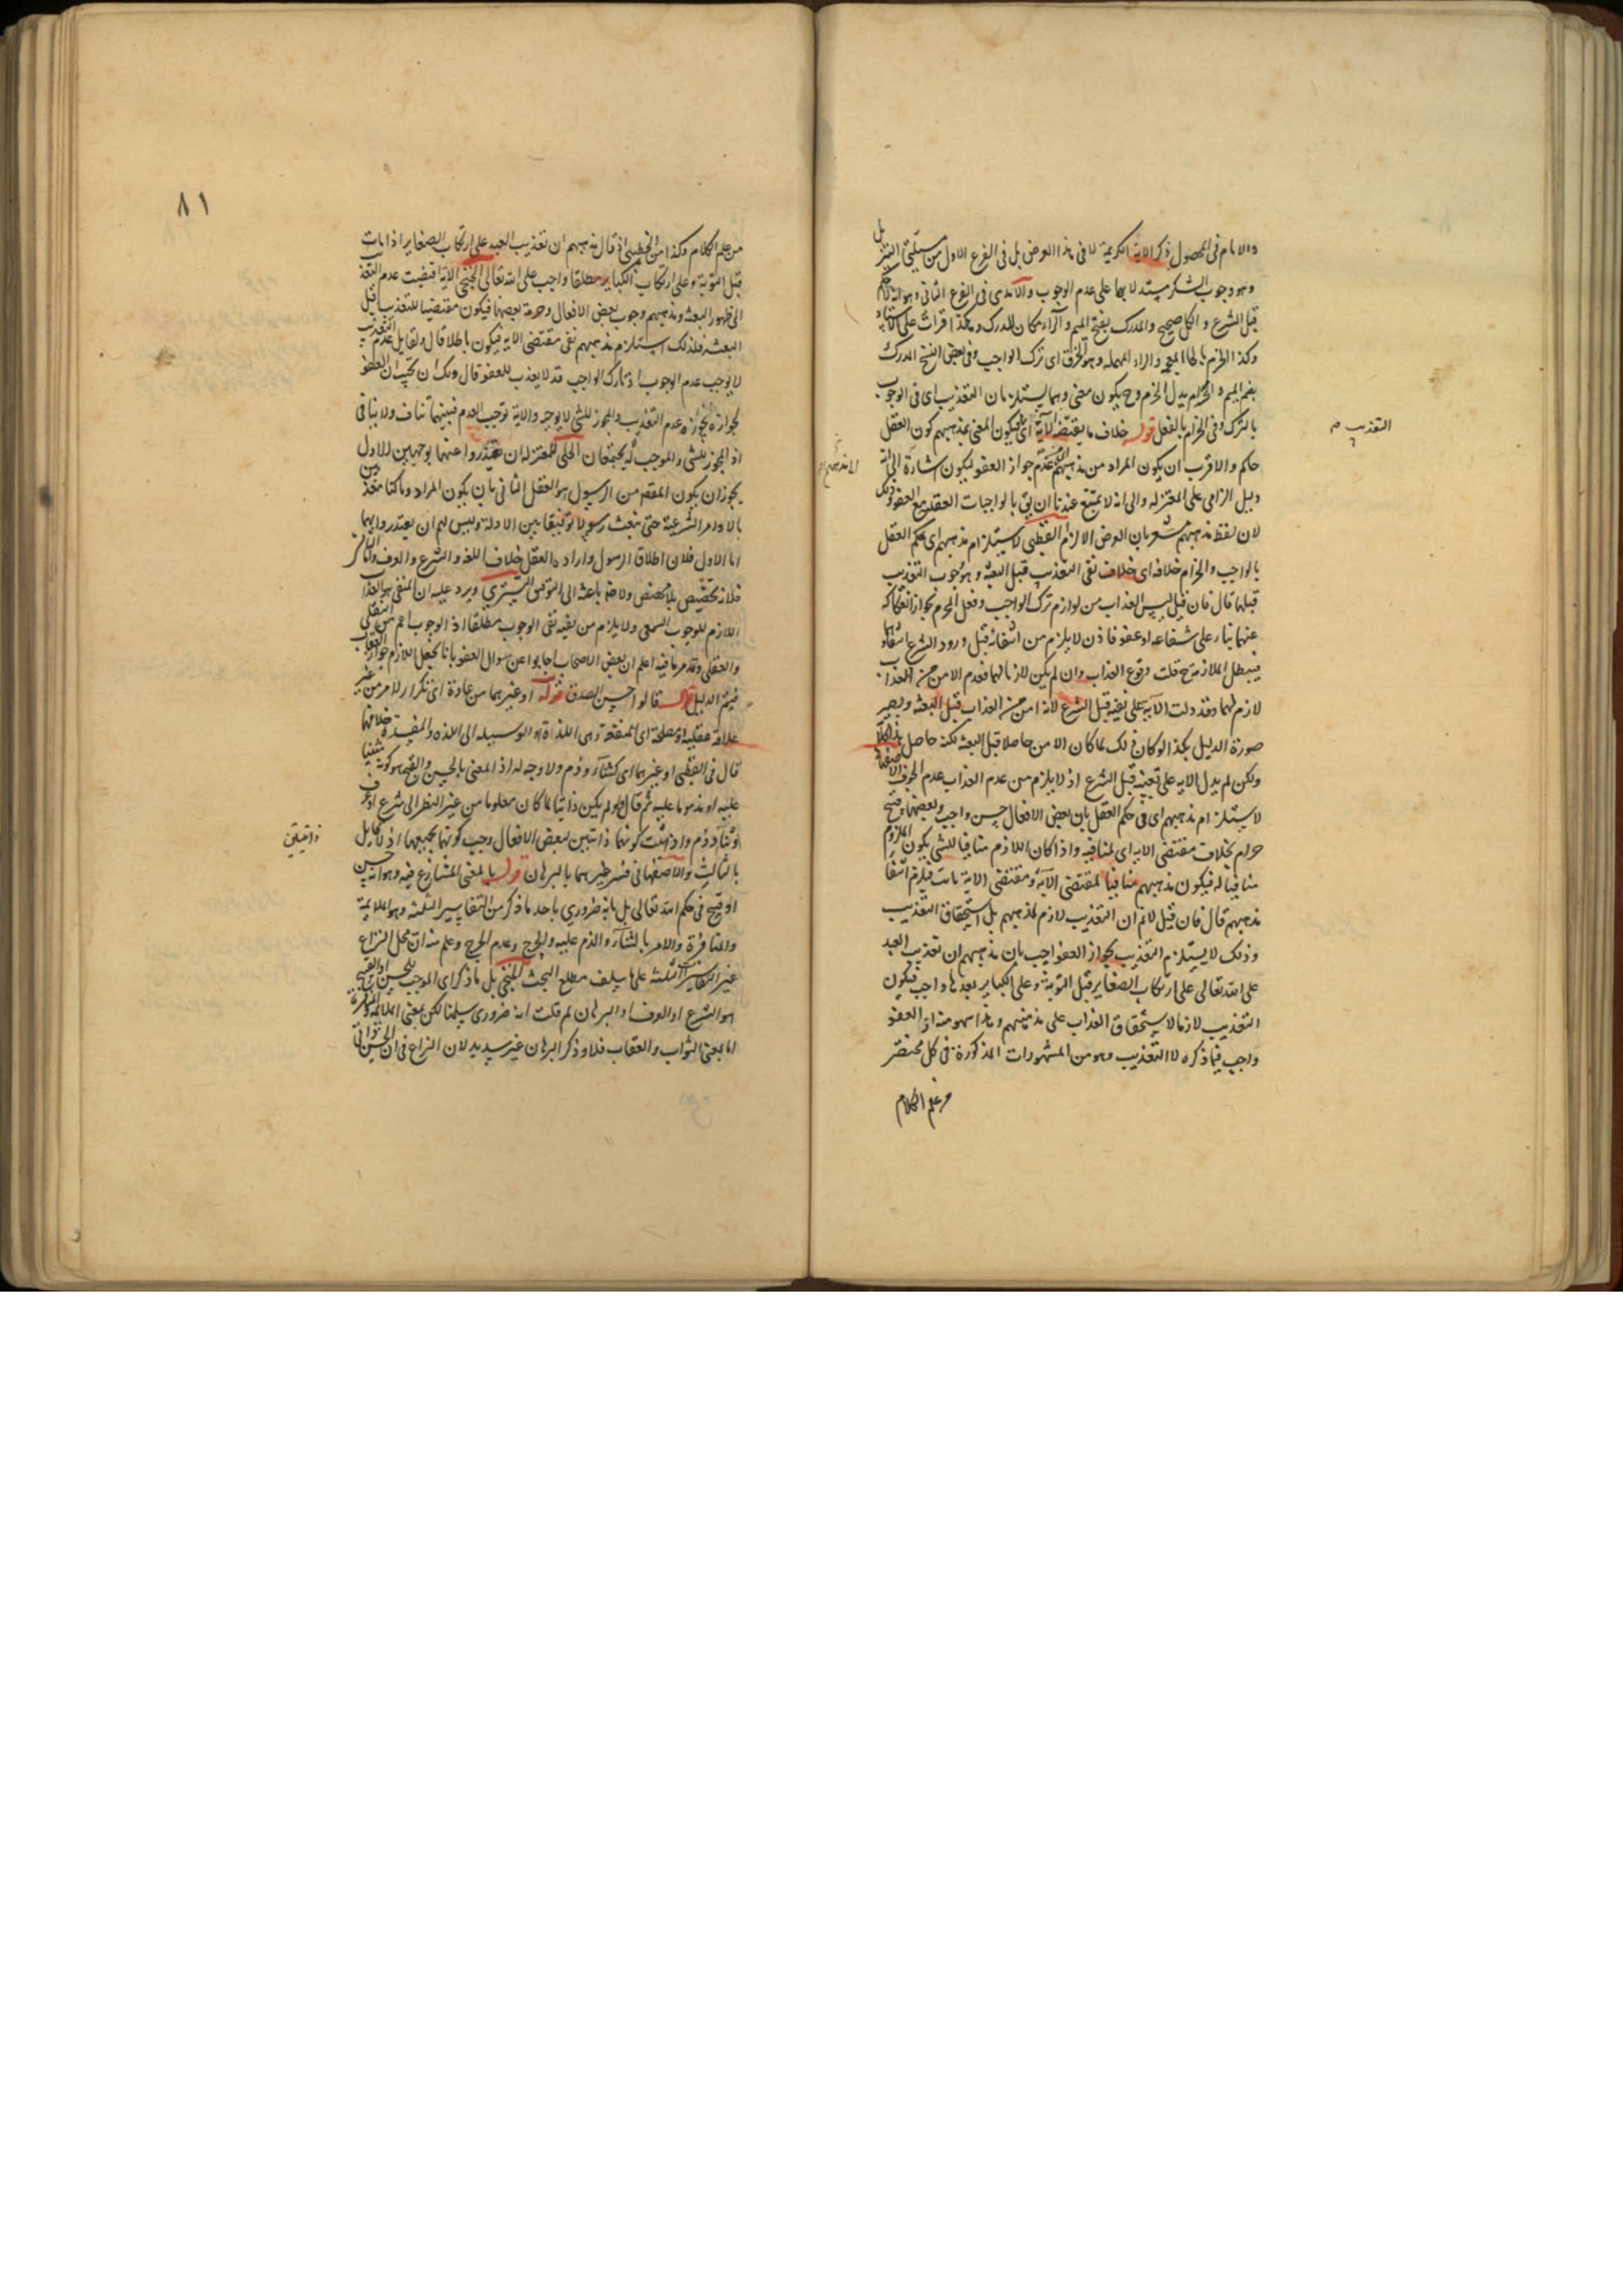 والامام فى المحصول ذكر الاية الكريمة لا فى هذا الموضع بل فى الفرع الاول من مسئلتى التنزل
وهو وجوب الشكر مستدلا بها على عدم الوجوب والآمدى فى الفرع الثانى وهو انه لا حكم
قبل الشرع والكل صحيح والمدرك بفتح الميم والراء مكان الدرك وهكذا قرأت على الاستاد
وكذا الخرم بالخاء المعجمة والراء المهملة وهو الخرق اى ترك الواجب وفى بعض النسخ المدرك
بضم الميم والحرام بدل الخرم وح يكون معنى وهما يستلزمان التعذيب اى فى الوجوب
بالترك وفى الحرام بالفعل قوله خلاف ما يقتضيه الآية اى فيكون المعنى بمذهبهم كون العقل
التعذيب
حاكم والاقرب ان يكون المراد من مذهبهم عدم جواز العفو ليكون اشارة الى انه
دليل الزامى على المعتزلة والى انه لا يمتنع عندنا ان يق بالواجبات العقلية مع العفو وذلك
لان لفظ مذهبهم مشعر بان الغرض الالزام القطبى لاستلزام مذهبهم اى حكم العقل
بالواجب والحرام خلافه اى خلاف نفى التعذيب قبل البعثة وهو وجوب التعذيب
قبلها قال فان قيل ليس العذاب من لوازم ترك الواجب وفعل المحرم لجواز انفكاكه
عنهما بناء على شفاعة او عفو فاذن لا يلزم من انتفائه قبل ورود الشرع انتفاؤهما
فيبطل الملازمة ح قلت وقوع العذاب وان لم يكن لازما لهما فعدم الامن من العذاب
لازم لهما وقد دلت الآية على نفيه قبل الشرع لانه امن من العذاب قبل البعثة ويصير
صورة الدليل هكذا لو كان ذلك لما كان الامن حاصلا قبل البعثة لكنه حاصل
ولكن لم يدل الاية على نفيه قبل الشرع اذ لا يلزم من عدم العذاب عدم الخوف
لاستلزام مذهبهم اى فى حكم العقل بان بعض الافعال حسن واجب وبعضها قبيح
حرام بخلاف مقتضى الاية اى لمنافيه واذا كان اللازم منافيا للشئ يكون الملزوم
منافيا له فيكون مذهبهم منافيا لمقتضى الآية ومقتضى الاية ثابت فيلزم انتفاء
مذهبهم قال فان قيل لا نم ان التعذيب لازم لمذهبهم بل استحقاق التعذيب
وذلك لا يستلزم التعذيب لجواز العفو اجيب بان مذهبهم ان تعذيب العبد
على الله تعالى على ارتكاب الصغاير قبل التوبة وعلى الكباير بعدها واجب فيكون
التعذيب لازما لاستحقاق العذاب على مذهبهم وهذا سهو منه اذ العفو
واجب فيما ذكره لا التعذيب وهو من المشهورات المذكورة فى كل مختصر
من علم الكلام
٨١
من علم الكلام وكذا من الخطيبى اذ قال مذهبهم ان تعذيب العبد على ارتكاب الصغاير اذا مات
قبل التوبة وعلى ارتكاب الكباير مطلقا واجب على الله تعالى الخنجى الاية اقتضت عدم التعذيب
الى ظهور البعثة ومذهبهم وجوب بعض الافعال وحرمة بعضها فيكون مقتضيا للتعذيب قبل
البعثة فلذلك استلزم مذهبهم نفى مقتضى الاية فيكون باطلا قال ولقايل عدم التعذيب
لا يوجب عدم الوجوب اذ تارك الواجب قد لا يعذب للعفو قال ولك ان تجيب ان العفو
لجوازه يجوز عدم التعذيب والمجوز للشئ لا يوجبه والاية توجب العدم فبينهما تناف ولا ينافى
اذ المجوز للشئ والموجب له يجتمعان الحلى للمعتزلة ان يعتذروا عنهما بوجهين الاول
يجوز ان يكون المقصود من الرسول هو العقل الثانى بان يكون المراد وما كنا معذبين
بالاوامر الشرعية حتى نبعث رسولا توفيقا بين الادلة وليس لهم ان يعتذروا بهما
اما الاول فلان اطلاق الرسول وارادة العقل خلاف اللغة والشرع والعرف واما الثانى
فلانه تخصيص بلا مخصص ولا ضرورة باعثة الى التوفيق التسترى ويرد عليه ان المنفى هو العذاب
اللازم للوجوب السمعى ولا يلزم من نفيه نفى الوجوب مطلقا اذ الوجوب اعم من النقلى
والعقلى وقد مر ما فيه اعلم ان بعض الاصحاب اجابوا عن سوال العفو بانا نجعل اللازم جواز العقاب
فيتم الدليل قوله قالوا حسن الصدق قوله او غيرهما من عادة اى تكرار لامر من غير
علاقة عقلية او مصلحة اى منفعة وهى اللذة او الوسيلة الى اللذة والمفسدة خلافها
قال فى القطبى او غيرهما اى كثناء وذم ولا وجه له اذ المعنى بالحسن والقبح هو كونه مثنيا
عليه او مذموما عليه ثم قال ولو لم يكن ذاتيا لما كان معلوما من غير النظر الى شرع او عرف
او ثناء وذم واذا ثبت كونهما ذاتيين لبعض الافعال وجب كونهما لجميعها اذ لا قايل
ذاتيتين
بالثالث والاصفهانى فسر غيرهما بالبرهان قوله بالمعنى المتنازع فيه وهو انه حسن
او قبيح فى حكم الله تعالى بل بانه ضرورى باحد ما ذكر من التفاسير الثلثة وهو الملايمة
والمنافرة والامر بالثناء والذم عليه والحرج وعدم الحرج وعلم منه ان محل النزاع
غير التفاسير الثلثة على ما سلف مطلع البحث الخنجى بل ما ذكر اى الموجب للحسن او القبح
هو الشرع او العرف او البرهان لم قلت انه ضرورى سلمنا لكن بمعنى الملائمة والمنافرة
اما بمعنى الثواب والعقاب فلا وذكر البرهان غير سديد لان النزاع فى ان الحسن ذاتى